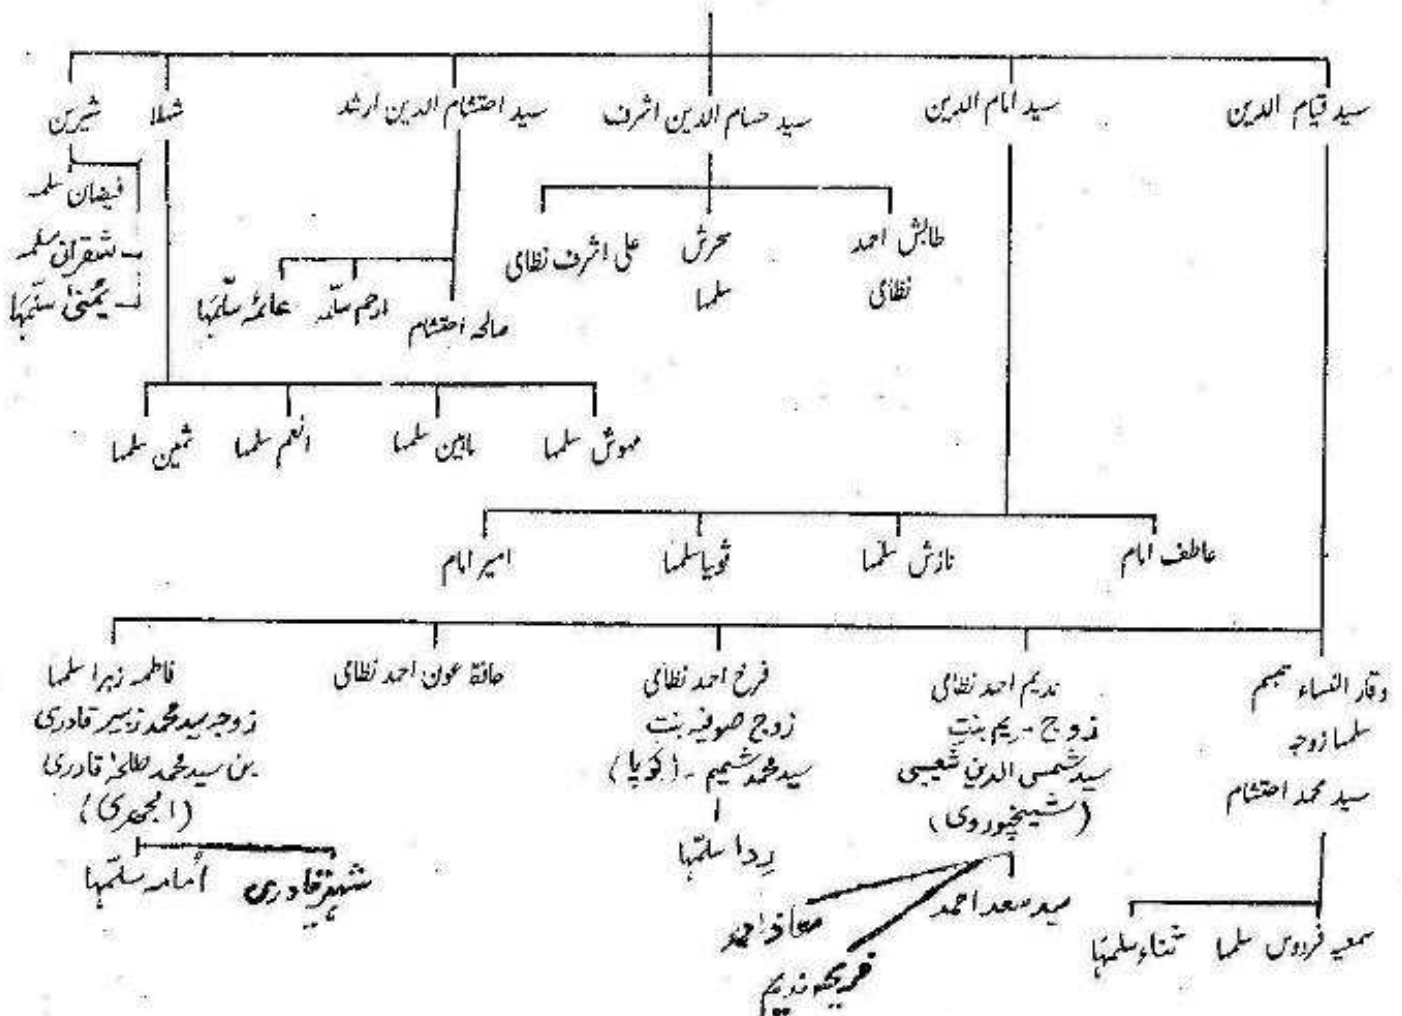 سید قیام الدین
سید امام الدین
سید حسام الدین اشرف
سید احتشام الدین ارشد
شہلا
شیرین
فیضان سلمہ
شقران سلمہ
یُمنیٰ سلّمہَا
طابش احمد
نظامی
سحرش
سلمہا
علی اشرف نظامی
صالحہ احتشام
ارحم سلّمہ
عائمہ سلّمہَا
مہوش سلمہا
ماہین سلمہا
انعم سلمہا
ثمین سلمہا
عاطف امام
نازش سلمہا
ثوبیا سلمہا
امیر امام
وقار النساء تبسم
سلمہا زوجہ
سید محمد احتشام
ندیم احمد نظامی
زوج مریم بنت
سید شمس الدین شعیبی
(شیخپوروی)
فرخ احمد نظامی
زوج صوفیہ بنت
سید محمد شمیم - (کوپا)
حافظ عون احمد نظامی
فاطمہ زہرا سلمہا
زوجہ سید محمد زبیر قادری
بن سید محمد طلحہ قادری
(ابجھری)
رِدا سلّمہا
اُمامہ سلّمہَا
قادری
سید سعد احمد
معاذ احمد
فریحہ ندیم
سمعیہ فردوس سلمہا
ثناء سلمہَا